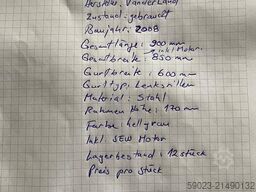 Hersteller: Vanderland
Zustand: gebraucht
Baujahr: 2008
Gesamtlänge: 900 mm
inkl Motor.
Gesamtbreite: 850 mm
Gurtbreite: 600 mm
Gurttyp: Lenkrollen
Material: Stahl
Rahmen Höhe: 170 mm
Farbe: hellgrau
Inkl. SEW Motor
Lagerbestand: 12 stück
Preis pro stück
59023-21490132